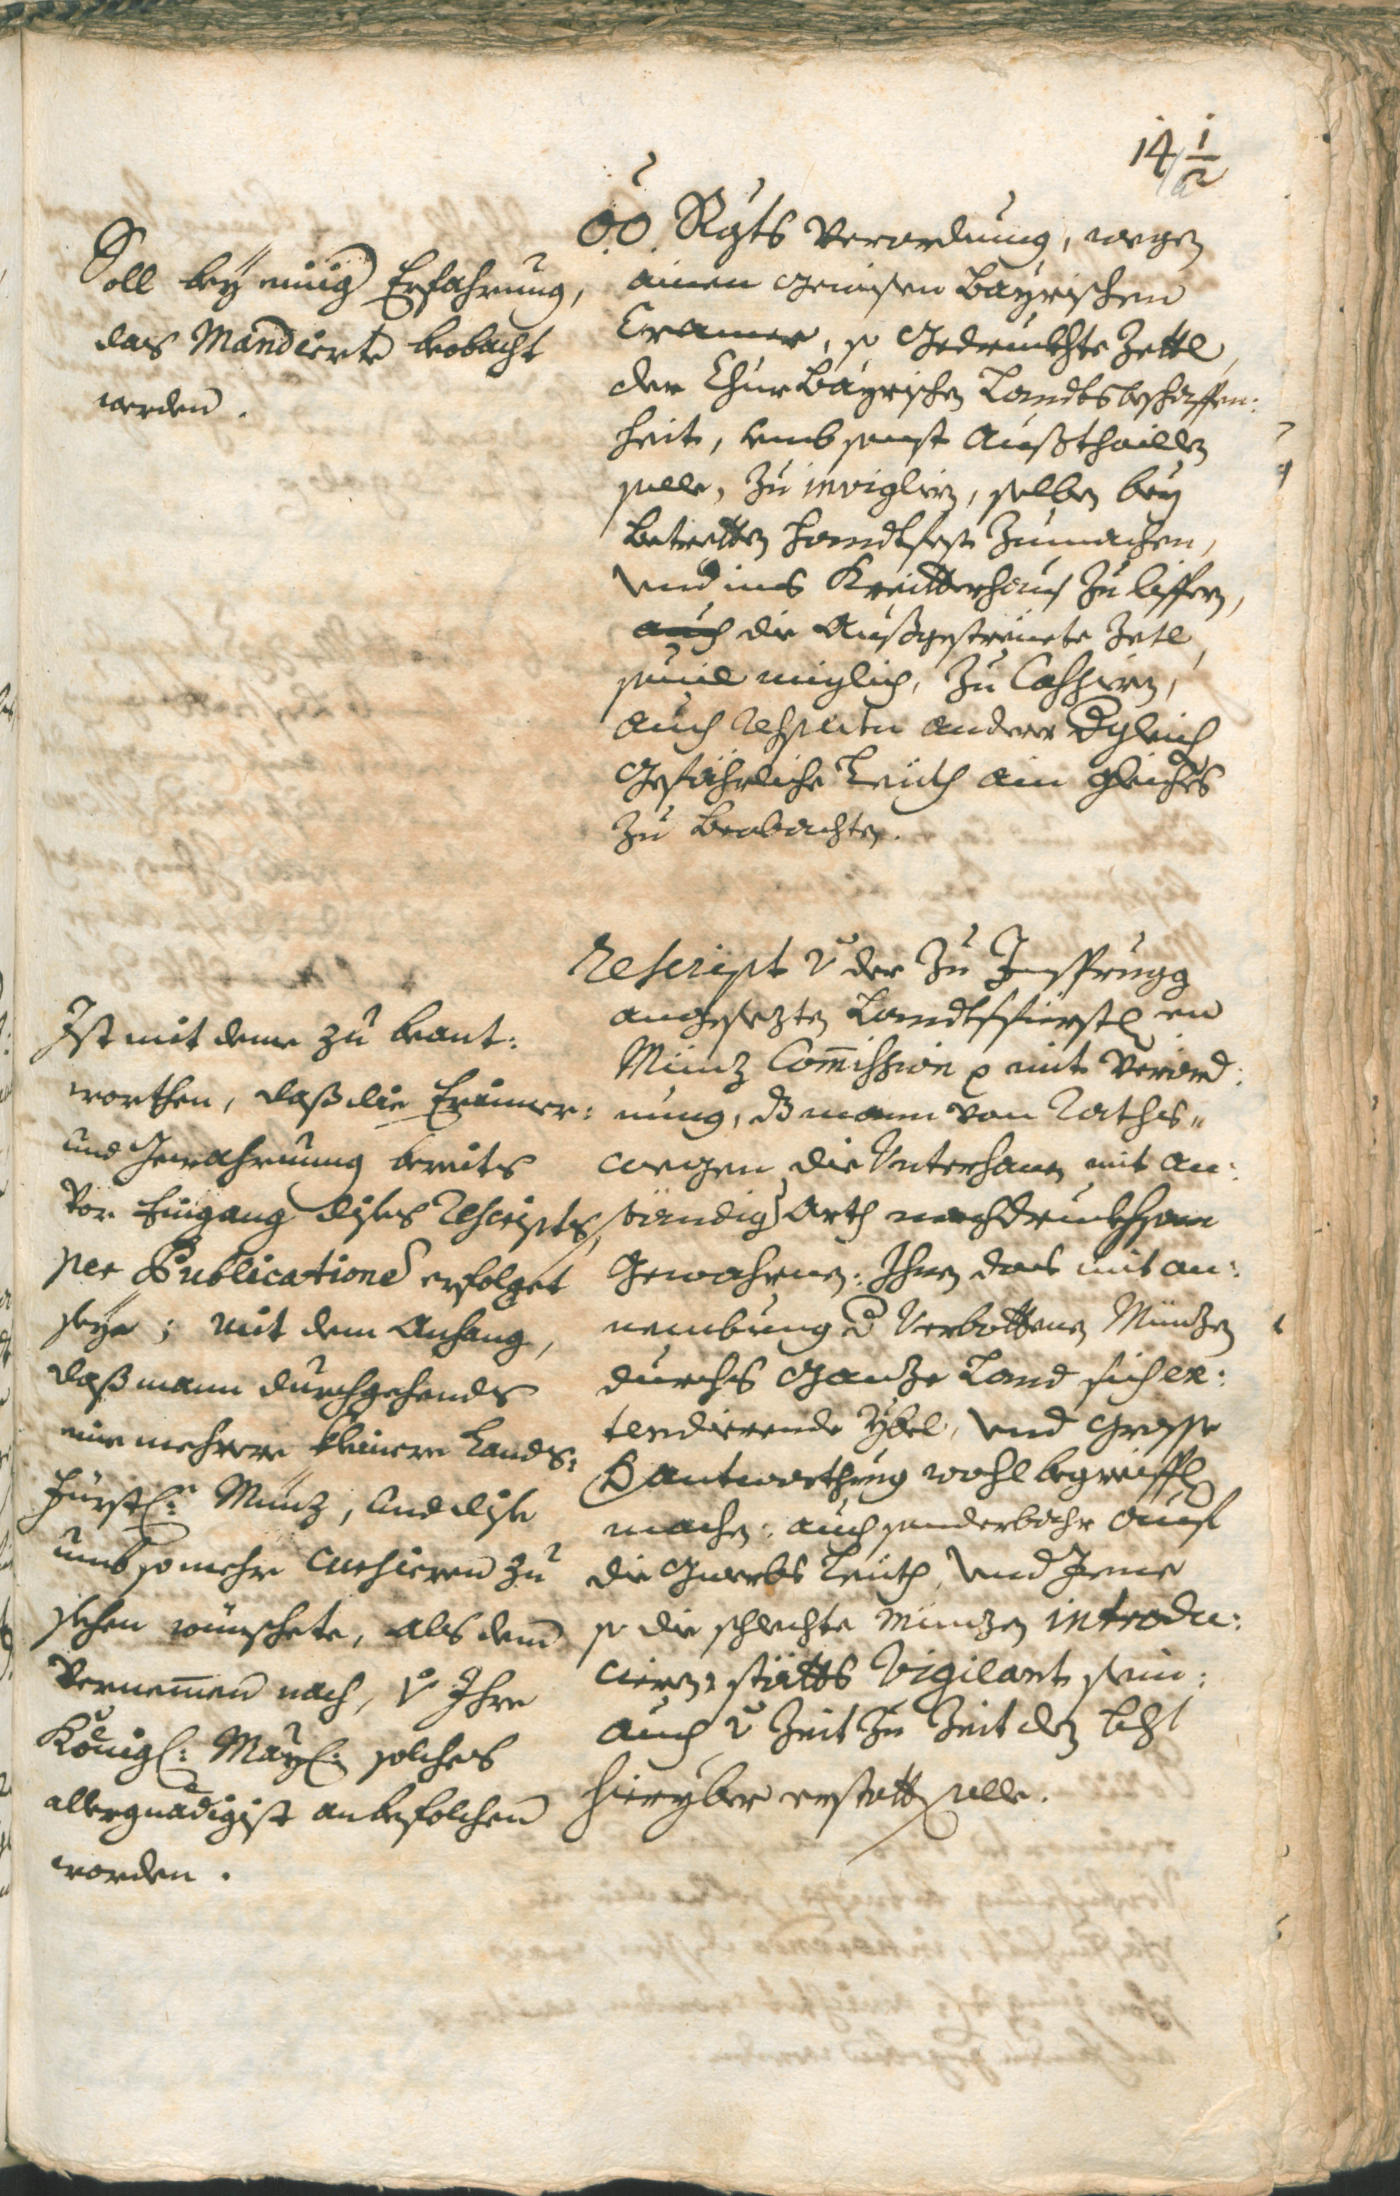 14 1/2
Soll bey einig Erfahrung,
das Mandierte beobacht
werden.
O:Ö. Rgts Verordnung, wegen
ainen gewisen Bayrischen
Cramer, so gedruckhte Zettl,
der Chur Bayrischen Landtsbeschaffen:
heit, umb sonst Außthaillen
solle, zu invigliern, selben bey
betretten handtfest zumachen,
und ins Kreitterhaus zu liffern,
auch die Außgestreuete Zetl,
souil miglich, zu Cassiern,
auch respectu anderer dergleich
gefährliche Leuth ain gleiches
zu beobachten.
Ist mit deme zu beant:
worthen, daß die Erinner:
und Gewahrnung bereits
vor Eingang dises Rescripts,
per Publicationes erfolget
seye; mit dem Anhang,
daß mann durchgehends
eine mehrere kleinere Lands:
fürstl: Münz, und dise
umb so mehr cursieren zu
sehen wünschete, als dem
Vernemmen nach, v. Ihro
Königl: May: solches
allergnädigist anbefolchen
worden.
Rescript v. der zu Insprugg
angesezten Landtsfürstl en
Münz Commission p mit Verord:
nung, dz mann von Raths
wegen die Unterthanen mit an:
ständig Arth nachdruckhsam
gewahrnen: Ihnen das mit an:
nembung d Verbottenen Münzen
durchs ganze Land sich ex:
tendierende Ybel, und grosse
Verantworthung wohl begreiffl
machen: auch sonderbahr auf
die Gwerbs Leuth, und Jene
so die schlechte Münzen introdu:
cieren, stätts Vigilant sein:
auch v. Zeit zu Zeit den bcht
hieryber erstatten solle.